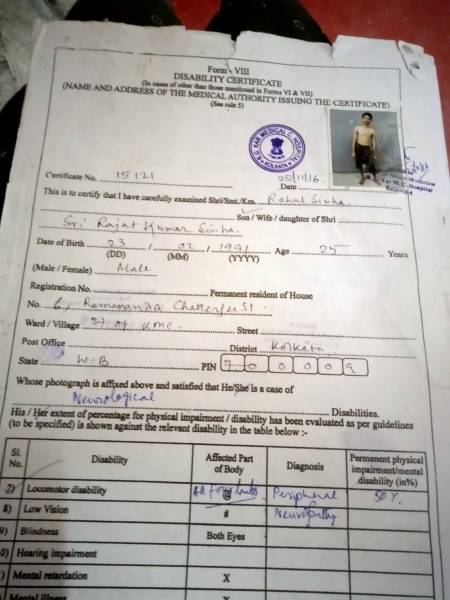 Form - VIII
DISABILITY CERTIFICATE
(In cases of other than those mentioned in Forms VI & VII)
(NAME AND ADDRESS OF THE MEDICAL AUTHORITY ISSUING THE CERTIFICATE)
(See rule 5)
R.G. KAR MEDICAL C. HOSPITAL
KOLKATA
Medicine
Kar M. C. Hospital
Certificate No. 15121 Date 25/11/16
This is to certify that I have carefully examined Shri/Smt./Km. Rahul Sinha
Son / Wife / daughter of Shri
Sri Rajat Kumar Sinha.
Date of Birth 23 / 02 / 1991 Age 25 Years
(DD) (MM) (YYYY)
(Male / Female) Male
Registration No. Permanent resident of House
No. 6, Ramananda Chatterjee St.
Ward / Village 37 of KMC Street
Post Office District Kolkata
State W.B PIN 700009
Whose photograph is affixed above and satisfied that He/She is a case of
Neurological Disabilities.
His / Her extent of percentage for physical impairment / disability has been evaluated as per guidelines
(to be specified) is shown against the relevant disability in the table below :-
Sl. No. Disability Affected Part of Body Diagnosis Permenent physical impairment/mental disability (in%)
7) Locomotor disability All four limbs @ Peripheral Neuropathy 50%
8) Low Vision #
9) Blindness Both Eyes
0) Hearing impairment
) Mental retardation X
Mental illness X